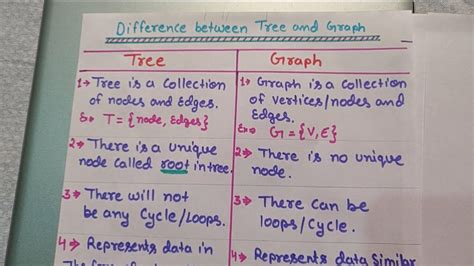 Difference between Tree and Graph
Tree
1→ Tree is a Collection
of nodes and Edges.
Ex→ T = {node, Edges}
2→ There is a unique
node called root in tree.
3→ There will not
be any Cycle/Loops.
4→ Represents data in
Graph
1→ Graph is a Collection
of vertices/nodes and
Edges.
Ex→ G = {V,E}
2→ There is no unique
node.
3→ There can be
loops/Cycle.
4→ Represents data similar